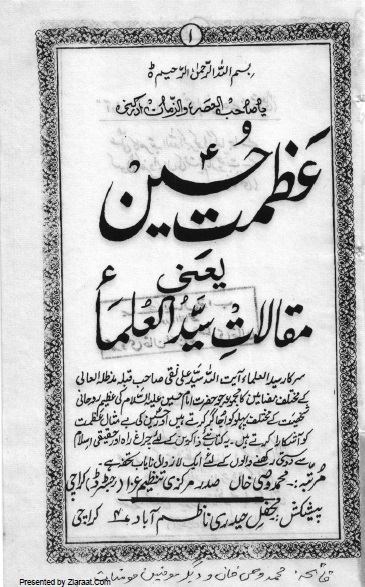 ۱
بسم اللہ الرحمٰن الرحیم ط
یا صاحب العصر والزمان ادرکنی
عظمت حسینؑ
یعنی
مقالاتِ سیّد العُلماءؑ
سرکار سید العلماء آیت اللہ سیّد علی نقی صاحب قبلہ مدظلہ العالی
کے مختلف مضامین کا مجموعہ جو حضرت امام حسین علیہ السلام کی عظیم روحانی
شخصیت کے مختلف پہلو کو اجاگر کرتے ہیں اور حسین کی بے مثال عظمت
کو آشکارا کرتے ہیں۔ یہ کتاب ذاکرین کے لئے چراغ راہ اور حقیقی اسلام
سے دوستی رکھنے والوں کے لئے ایک لازوال نایاب تحفہ ہے۔
مرتبہ: محمد وصی خان صدر مرکزی تنظیم عزا رجسٹرڈ کراچی
پیشکش: محفل حیدری ناظم آباد ۴ کراچی
محمد وصی خان و دیگر مومنین
Presented by Ziaraat.Com